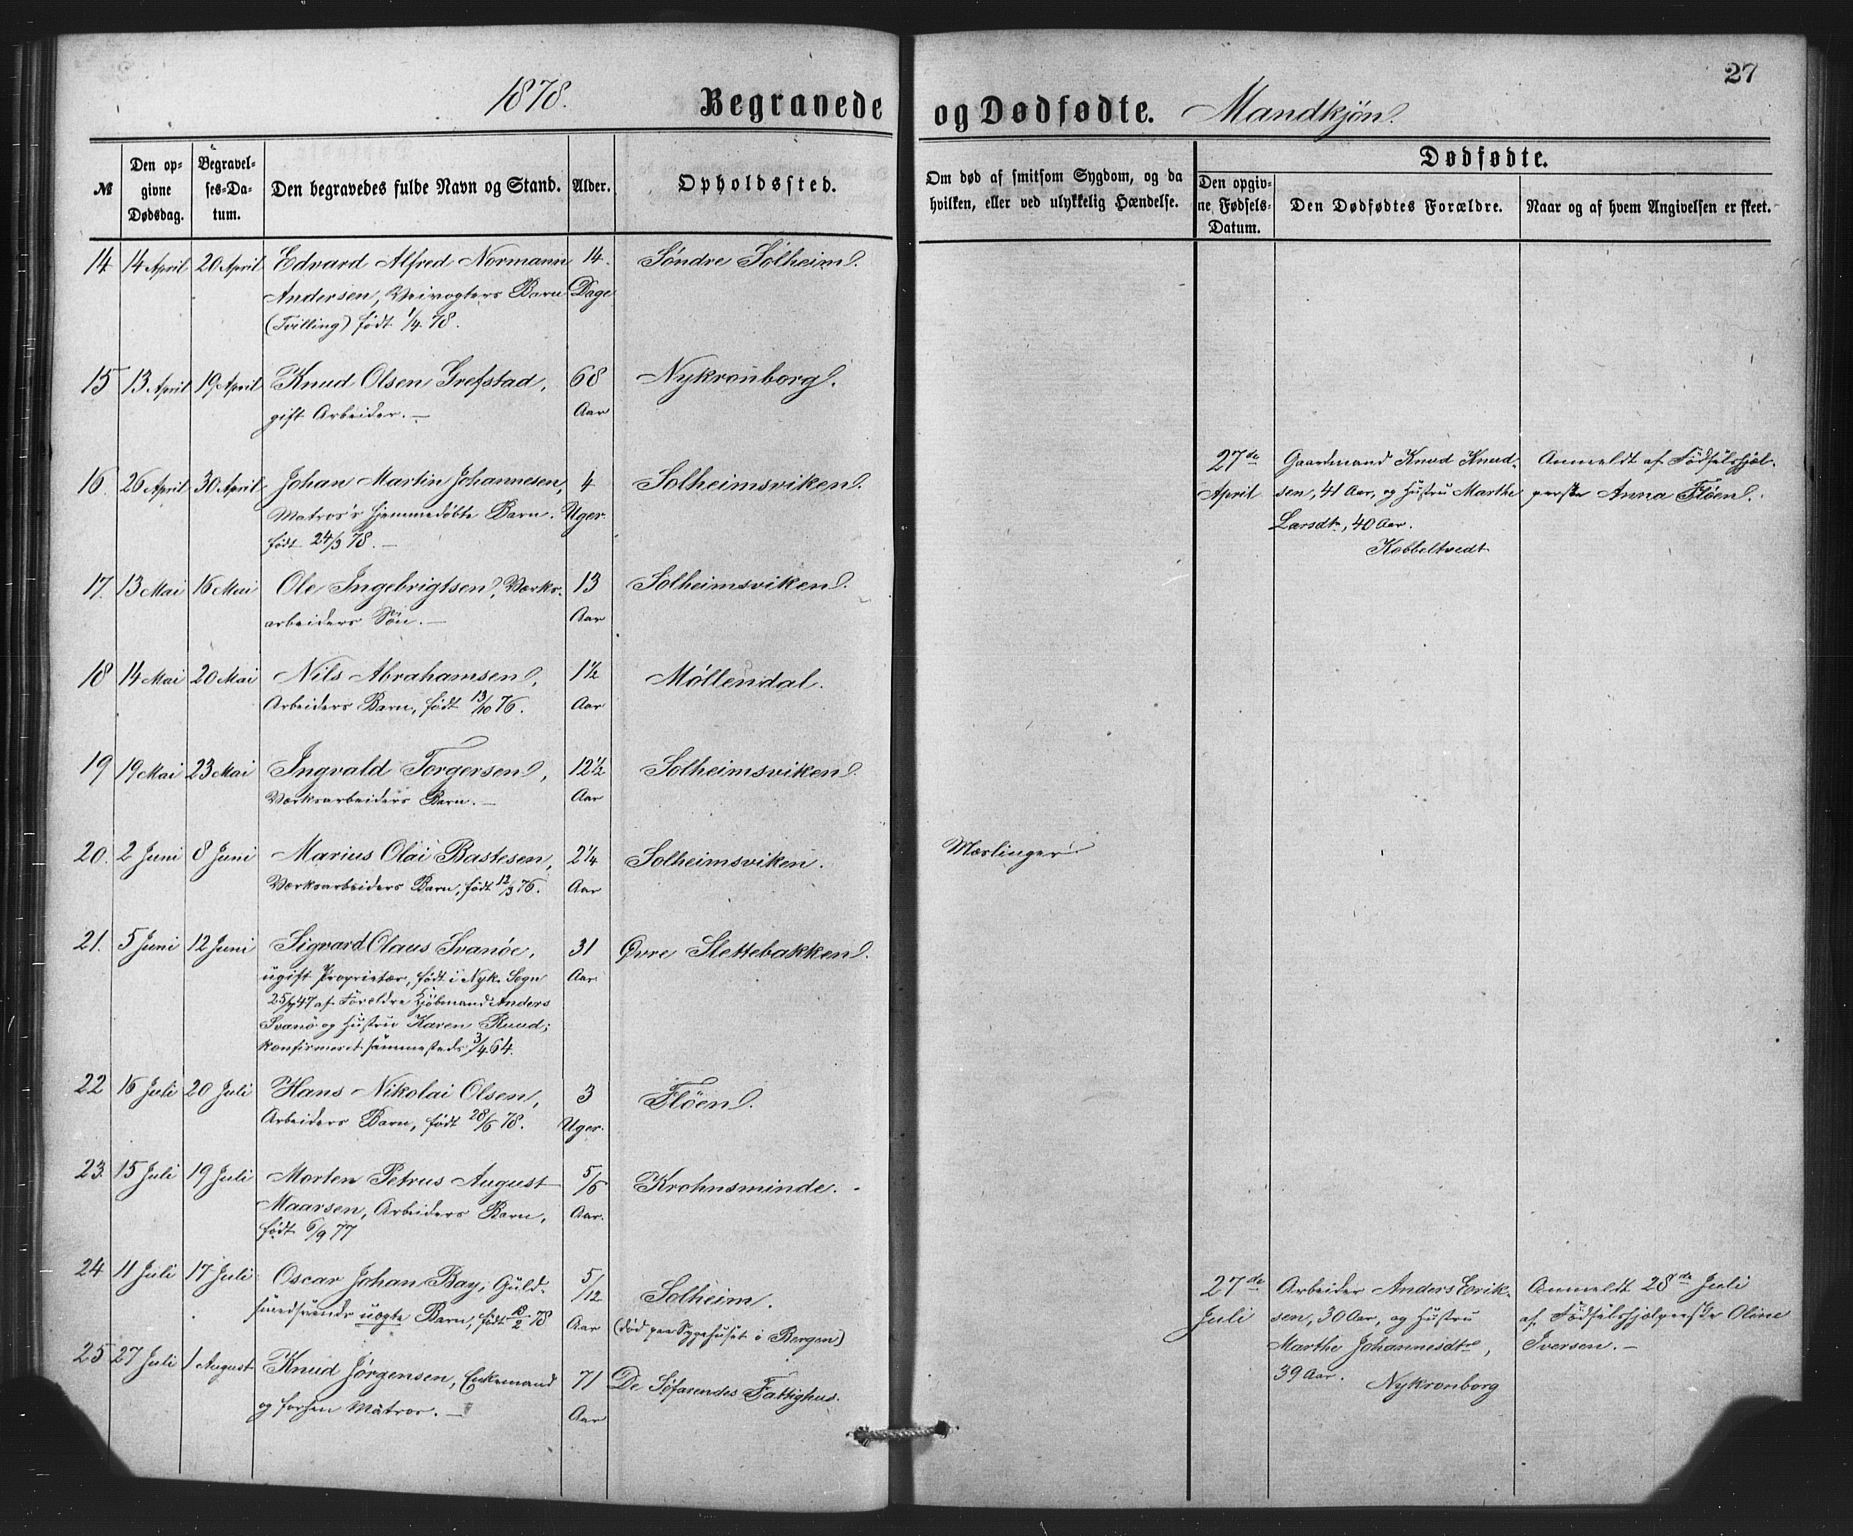 27
1878.
Begravede og Dødfødte. Mandkjøn.
№
Den opgivne Dødsdag.
Begravelses-Datum.
Den begravedes fulde Navn og Stand.
Alder.
Opholdssted.
Om død af smitsom Sygdom, og da hvilken, eller ved ulykkelig Hændelse.
Dødfødte.
Den opgivne Fødsels-Datum.
Den Dødfødtes Forældre.
Naar og af hvem Angivelsen er skeet.
14 14 April 20 April Edvard Alfred Normann 14. Søndre Solheim.
Andersen, Veivogters Barn Dage
(Tvilling) født 1/4 78.
15 13 April 19 April Knud Olsen Grefstad, 68 Nykronborg.
gift Arbeider. — Aar
16. 26 April 30 April Johan Martin Johannesen, 4 Solheimsviken.
Matros's hjemmedøbte Barn. Uger.
født 24/3 78. —
27de April
Gaardmand Knud Knud-
sen, 41 Aar, og Hustru Marthe
Larsdtr, 40 Aar.
Kobbeltvedt
Anmeldt af Fødselshjæl-
perske Anna Fløen.
17. 13 Mai 16 Mai Ole Ingebrigtsen, Værks- 13 Solheimsviken.
arbeiders Søn. — Aar
18 14 Mai 20 Mai Nils Abrahamsen, 1½ Møllendal.
Arbeiders Barn, født 13/10 76. Aar
19 19 Mai 23 Mai Ingvald Torgersen, 12½ Solheimsviken.
Værksarbeiders Barn. — Aar
20. 2 Juni 8 Juni Marius Olai Bastesen, 2¼ Solheimsviken. Mæslinger
Værksarbeiders Barn, født 12/3 76. Aar
21. 5 Juni 12 Juni Sigvard Olaus Svanöe, 31 Øvre Slettebakken.
ugift Proprietær, født i Nyk. Sogn Aar
47 af Forældre Kjøbmand Anders
Svanö og Hustru Karen Ruud;
konfirmeret sammesteds 3/4 64.
22 16 Juli 20 Juli Hans Nikolai Olsen, 3 Fløen.
Arbeiders Barn, født 28/6 78. Uger.
23. 15 Juli 19 Juli Morten Petrus August 5/6 Krohnsminde.
Maarsen, Arbeiders Barn, Aar.
født 6/9 77
24 11 Juli 17 Juli Oscar Johan Bay, Guld- 5/12 Solheim.
smedsvends uægte Barn, født 12/2 78 Aar (død paa Sygehuset i Bergen)
27de Juli
Arbeider Anders Erik-
sen, 30 Aar, og Hustru
Marthe Johannesdtr,
39 Aar. Nykronborg
Anmeldt 28de Juli
af Fødselshjælperske Oline
Iversen. —
25 27 Juli 1 August Knud Jørgensen, Enkemand 71 De Søfarendes Fattighus.
og forhen Matros. — Aar